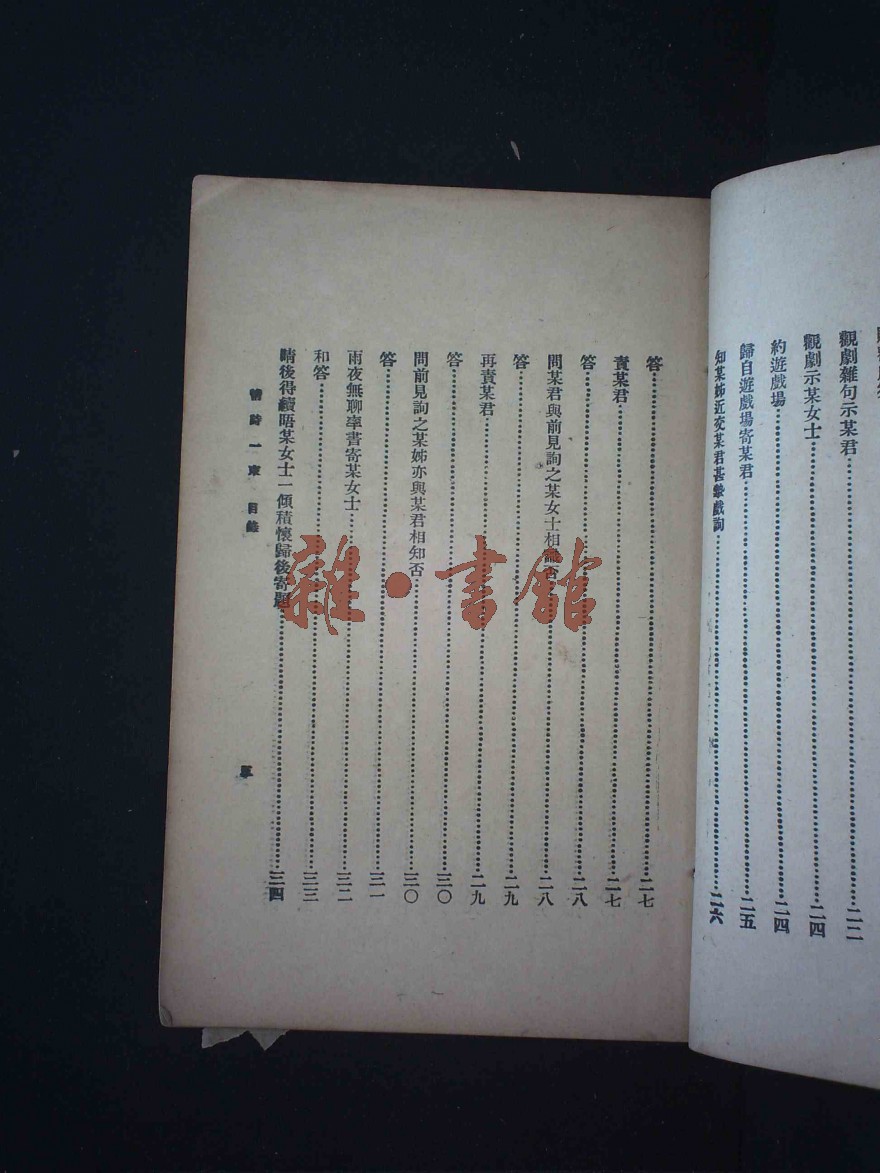 觀劇雜句示某君……二二
觀劇示某女士……二四
約遊戲場……二四
歸自遊戲場寄某君……二五
知某姊近交某君甚摯戲詢……二六
答……二七
責某君……二七
答……二八
問某君與前見詢之某女士相識否……二八
答……二九
再責某君……二九
答……三〇
問前見詢之某姊亦與某君相知否……三〇
答……三一
雨夜無聊率書寄某女士……三二
和答……三三
晴後得續晤某女士一傾積懷歸後寄題……三四
情詩一束 目錄
雜·書館